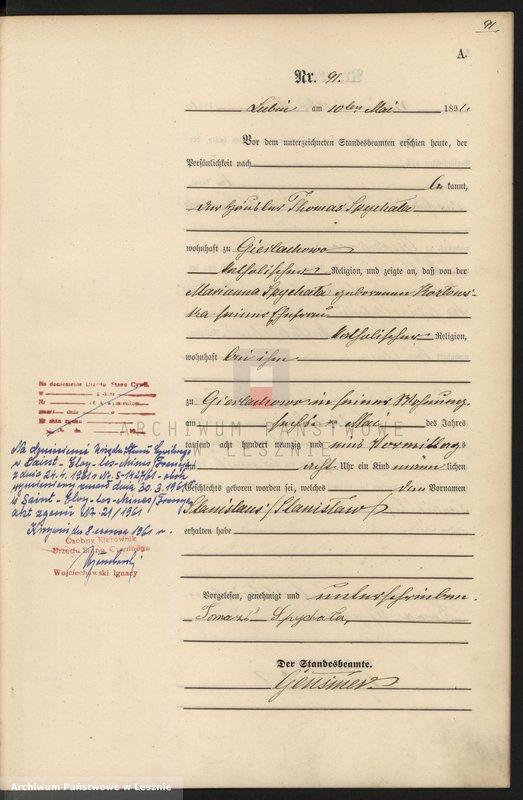 91
A.
Nr. 91.
Lubin am 10ten Mai 1891.
Vor dem unterzeichneten Standesbeamten erschien heute, der
Persönlichkeit nach
be kannt,
der Häusler Thomas Spychała
wohnhaft zu Gierlachowo
katholischer Religion, und zeigte an, daß von der
Marianna Spychała geborenen
seiner Ehefrau
katholischer Religion,
wohnhaft bei ihm
zu Gierlachowo in seiner Wohnung
am Mai des Jahres
tausend acht hundert neunzig und eins Vormittags
acht Uhr ein Kind männlichen
Geschlechts geboren worden sei, welches den Vornamen
Stanislaus /Stanisław/
erhalten habe
Vorgelesen, genehmigt und unterschrieben.
Tomasz Spychała
Der Standesbeamte.
Na doniesienie Urzędu Stanu Cywil.
Na doniesienie Urzędu Stanu Cywilnego
w Saint-Eloy-les-Mines /Francja/
z dnia 24.4.1961
zmarł dnia 30.3.1961
w Saint-Eloy-les-Mines /Francja/
akt zgonu Nr. 21/1961
Krzywiń dn. 8 czerwca 1961 r.
Osobny Kierownik
Urzędu Stanu Cywilnego
Wojciechowski Ignacy
ARCHIWUM PAŃSTWOWE
W LESZNIE
Archiwum Państwowe w Lesznie